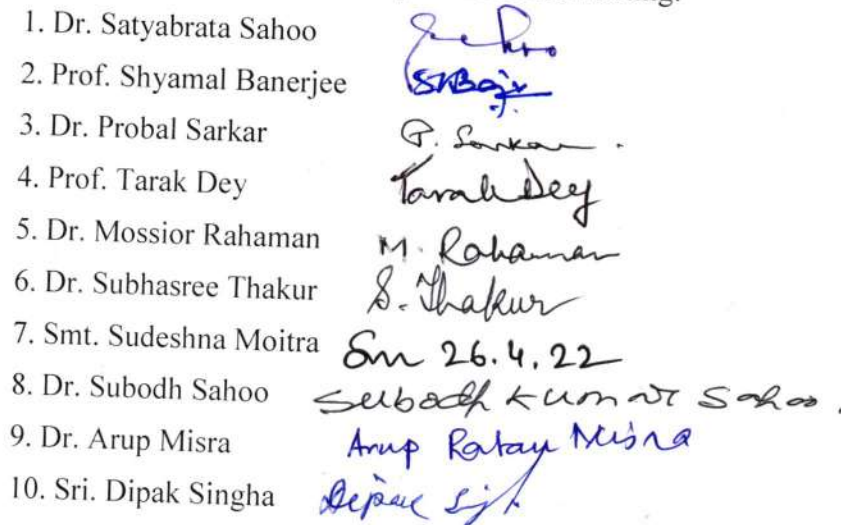 1. Dr. Satyabrata Sahoo
2. Prof. Shyamal Banerjee
3. Dr. Probal Sarkar P. Sarkar.
4. Prof. Tarak Dey Tarak Dey
5. Dr. Mossior Rahaman M. Rahaman
6. Dr. Subhasree Thakur S. Thakur
7. Smt. Sudeshna Moitra Sm 26.4.22
8. Dr. Subodh Sahoo Subodh Kumar Sahoo.
9. Dr. Arup Misra Arup Ratan Misra
10. Sri. Dipak Singha Dipak